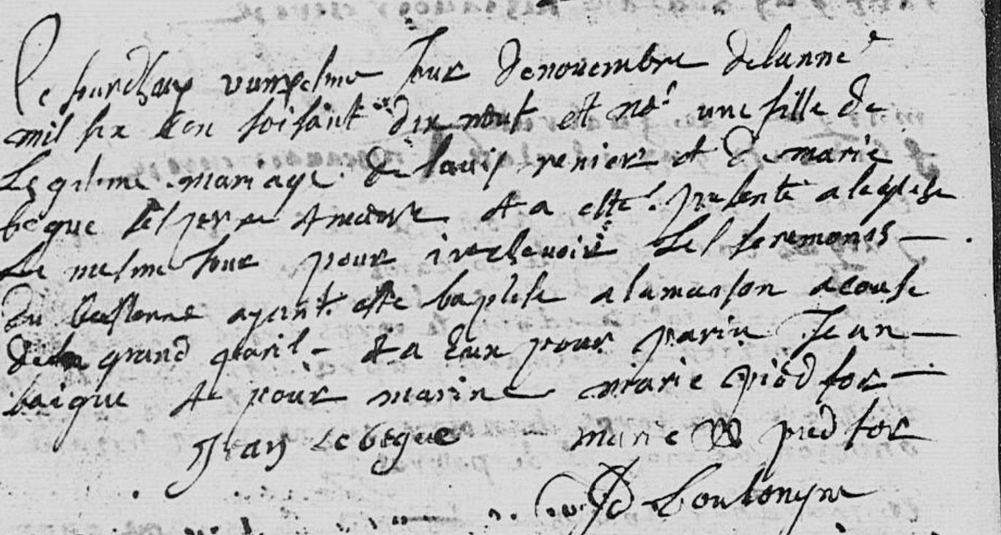 Ce jourdhuy vintiesme jour de novembre delanné
mil six cen soisant dix neuf et né une fille de
Legitime mariage de louis renier et de marie
begue ses pere et mere et a esté presenté a leglise
Le mesme jour pour i reclevoir les seremonis
du batesme ayant esté baptise a la maison a couse
de grand peril et a eux pour parin Jean
baique et pour marine marie piedfor
Jean Le begue marie piedfor
Boulongne